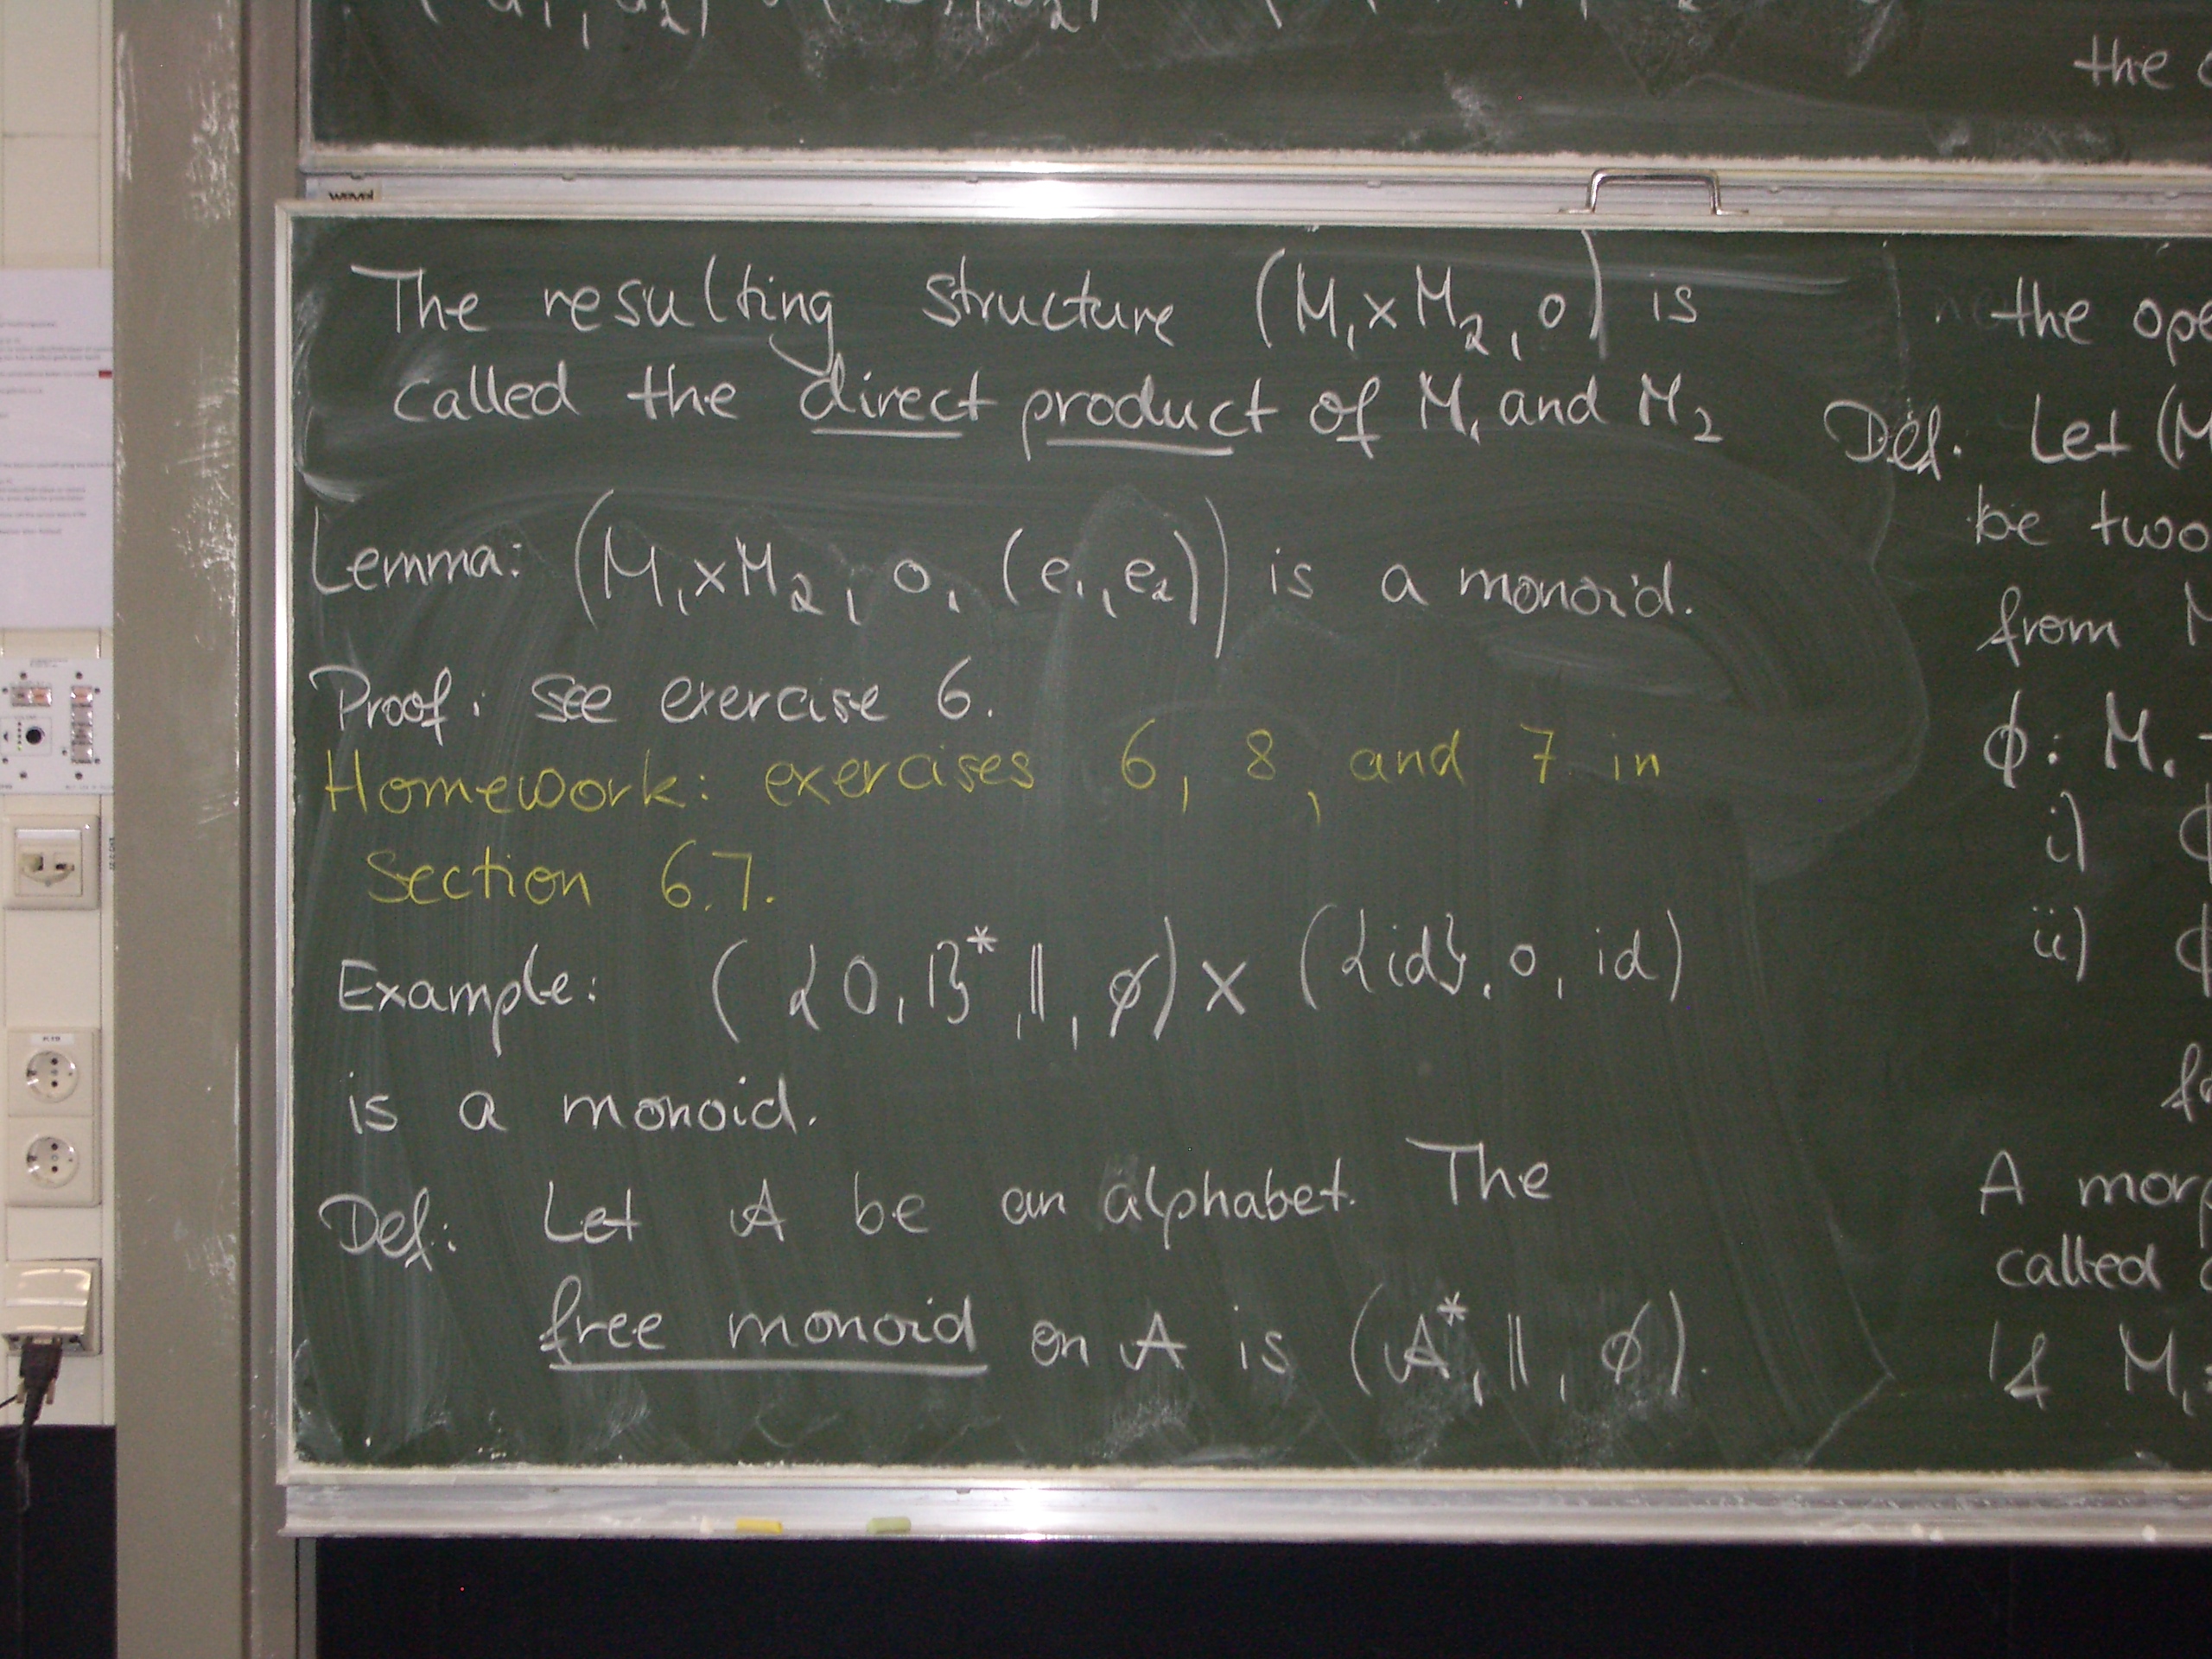 the
wevel
The resulting structure (M₁×M₂, o) is
called the direct product of M₁ and M₂
Lemma: (M₁×M₂, o, (e₁,e₂)) is a monoid.
Proof: see exercise 6.
Homework: exercises 6, 8, and 7 in
Section 6.7.
Example: ({0,1}*, ||, ∅) × ({id}, o, id)
is a monoid.
Def: Let A be an alphabet. The
free monoid on A is (A*, ||, ∅).
the ope
Def. Let (M
be two
from M
ϕ: M₁
i) ϕ
ii) ϕ
fo
A morp
called
If M₁